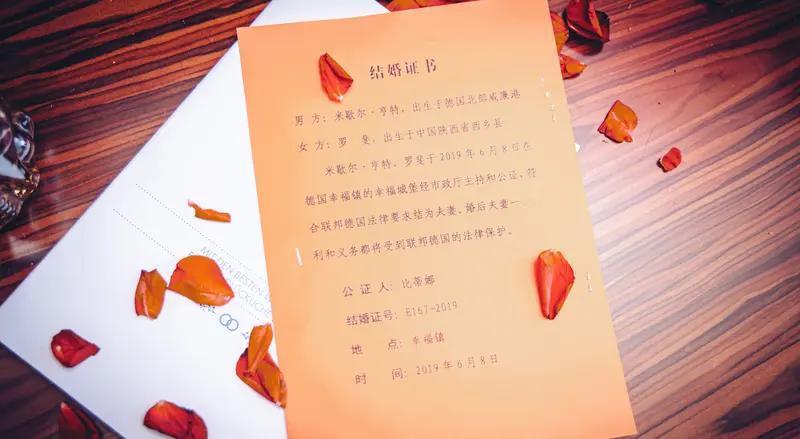 结婚证书
男 方：米歇尔·亨特，出生于德国北部威廉港
女 方：罗 斐，出生于中国陕西省西乡县
米歇尔·亨特，罗斐于2019年6月8日在
德国幸福镇的幸福城堡经市政厅主持和公证，符
合联邦德国法律要求结为夫妻。婚后夫妻一
利和义务都将受到联邦德国的法律保护。
公 证 人：比蒂娜
结婚证号：E167-2019
地 点：幸福镇
时 间：2019年6月8日
MIT DEN BESTEN